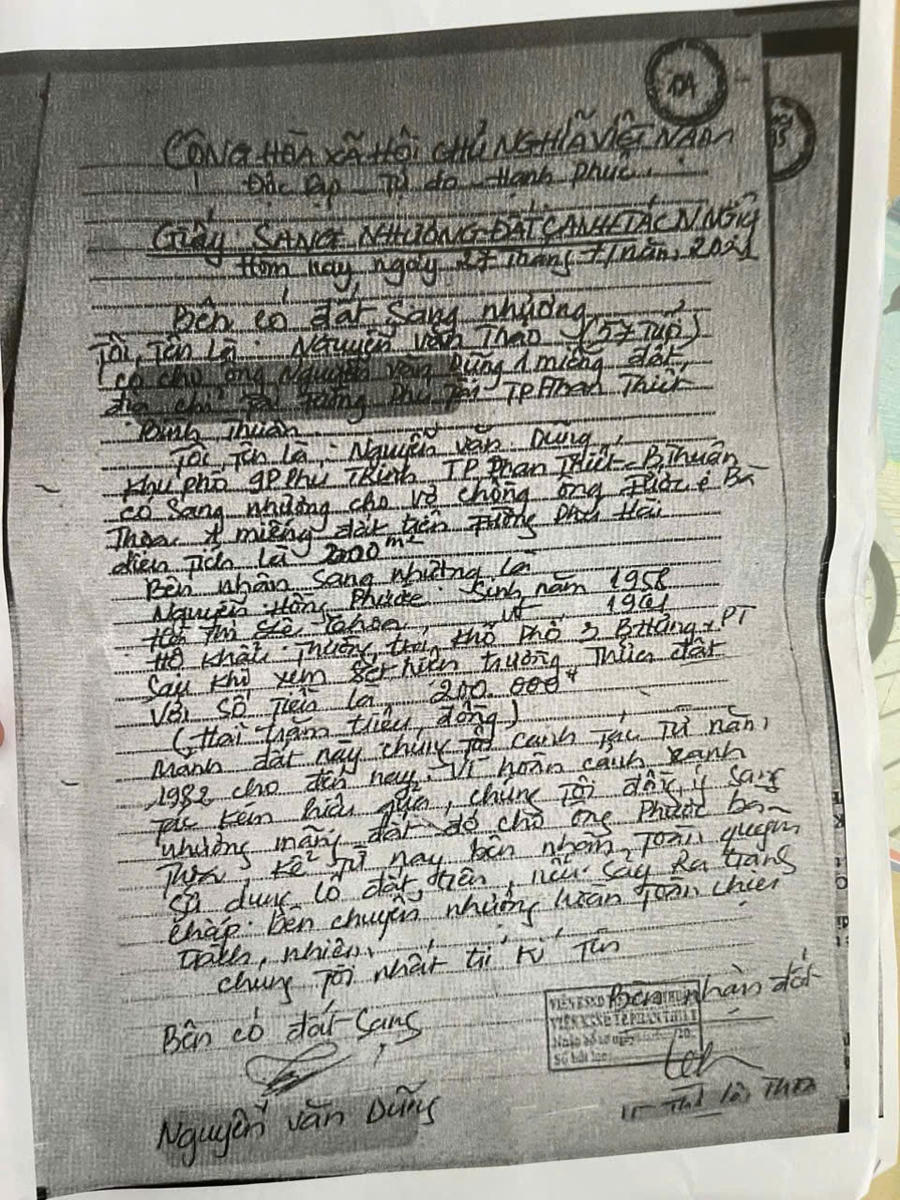 CỘNG HÒA XÃ HỘI CHỦ NGHĨA VIỆT NAM
Độc lập Tự do Hạnh Phúc
Giấy SANG NHƯỢNG ĐẤT CANH TÁC N NGHIỆP
Hôm nay, ngày 27 tháng 7/năm, 2021
Bên có đất Sang nhượng
Tôi, Tên là: Nguyễn Văn Thao (57 Tuổi)
có cho ông Nguyễn Văn Dũng 1 miếng đất
địa chỉ Tại đường Phú Tài TP Phan Thiết
Bình Thuận
Tôi Tên là: Nguyễn Văn Dũng,
Khu phố 9 P Phú Trinh TP Phan Thiết - B.Thuận
có Sang nhượng cho vợ chồng ông Phước Bà
Thoa 1 miếng đất trên đường Phú Hài
diện Tích là 2000m²
Bên nhận sang nhượng là
Nguyễn Hồng Phước Sinh năm 1958
Thị Lệ Thoa 1961
Hộ Khẩu Thường trú Khu Phố 3 B Hưng PT
Sau Khi xem Sét hiện trường Thửa đất
Với số Tiền là 200.000
(Hai trăm triệu đồng)
Mảnh đất này chúng Tôi canh Tác Từ năm,
1982 cho đến nay. Vì hoàn cảnh canh
tác kém hiệu quả, chúng Tôi đồng ý Sang
nhượng mảnh đất đó cho ông Phước bà
Thoa Kể Từ nay bên nhận Toàn quyền
sử dụng lô đất trên, nếu Sảy Ra tranh
chấp bên chuyển nhượng hoàn Toàn chiệu
trách nhiên
chúng Tôi nhất trí Kí Tên
Bên có đất Sang
Bên nhận đất
VIỆN KSND TP PHAN THIẾT
Số bút lục
Nguyễn Văn Dũng
Thị Lệ Thoa